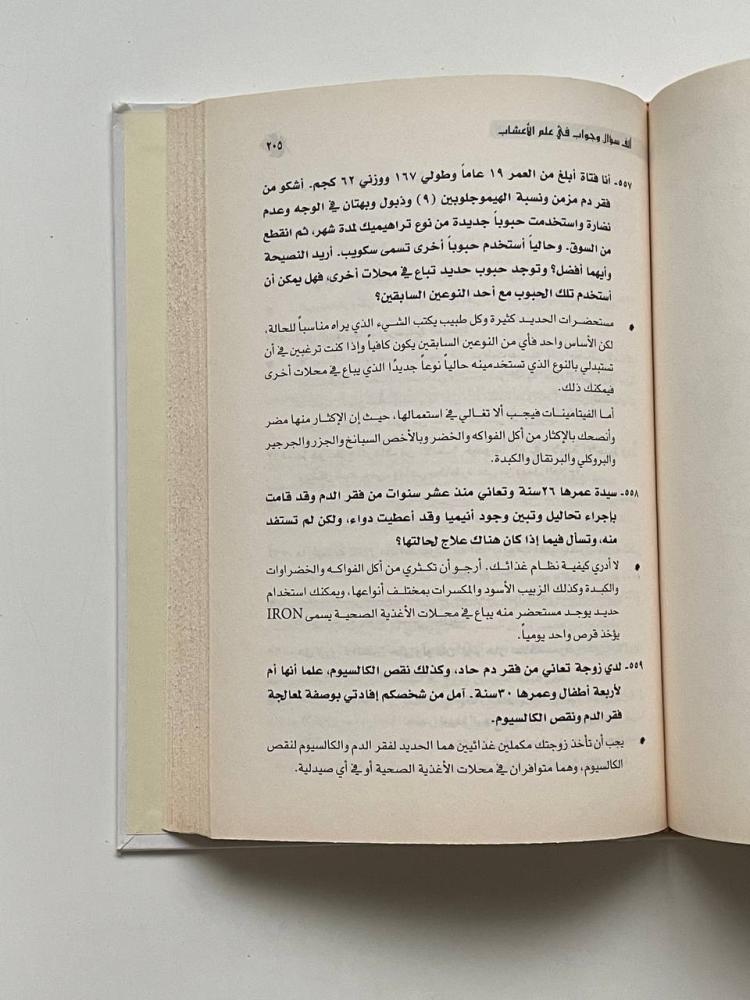 ألف سؤال وجواب في علم الأعشاب
٢٠٥
٥٥٧- أنا فتاة أبلغ من العمر ١٩ عاماً وطولي ١٦٧ ووزني ٦٢ كجم. أشكو من
فقر دم مزمن ونسبة الهيموجلوبين (٩) وذبول وبهتان في الوجه وعدم
نضارة واستخدمت حبوباً جديدة من نوع تراهيميك لمدة شهر، ثم انقطع
من السوق. وحالياً أستخدم حبوباً أخرى تسمى سكويب. أريد النصيحة
وأيهما أفضل؟ وتوجد حبوب حديد تباع في محلات أخرى، فهل يمكن أن
أستخدم تلك الحبوب مع أحد النوعين السابقين؟
• مستحضرات الحديد كثيرة وكل طبيب يكتب الشيء الذي يراه مناسباً للحالة،
لكن الأساس واحد فأي من النوعين السابقين يكون كافياً وإذا كنت ترغبين في أن
تستبدلي بالنوع الذي تستخدمينه حالياً نوعاً جديدًا الذي يباع في محلات أخرى
فيمكنك ذلك.
أما الفيتامينات فيجب ألا تغالي في استعمالها، حيث إن الإكثار منها مضر
وأنصحك بالإكثار من أكل الفواكه والخضر وبالأخص السبانخ والجزر والجرجير
والبروكلي والبرتقال والكبدة.
٥٥٨- سيدة عمرها ٢٦سنة وتعاني منذ عشر سنوات من فقر الدم وقد قامت
بإجراء تحاليل وتبين وجود أنيميا وقد أعطيت دواء، ولكن لم تستفد
منه، وتسأل فيما إذا كان هناك علاج لحالتها؟
• لا أدري كيفية نظام غذائك. أرجو أن تكثري من أكل الفواكه والخضراوات
والكبدة وكذلك الزبيب الأسود والمكسرات بمختلف أنواعها، ويمكنك استخدام
حديد يوجد مستحضر منه يباع في محلات الأغذية الصحية يسمى IRON
يؤخذ قرص واحد يومياً.
٥٥٩- لدي زوجة تعاني من فقر دم حاد، وكذلك نقص الكالسيوم، علما أنها أم
لأربعة أطفال وعمرها ٣٠سنة. آمل من شخصكم إفادتي بوصفة لمعالجة
فقر الدم ونقص الكالسيوم.
• يجب أن تأخذ زوجتك مكملين غذائيين هما الحديد لفقر الدم والكالسيوم لنقص
الكالسيوم، وهما متوافران في محلات الأغذية الصحية أو في أي صيدلية.